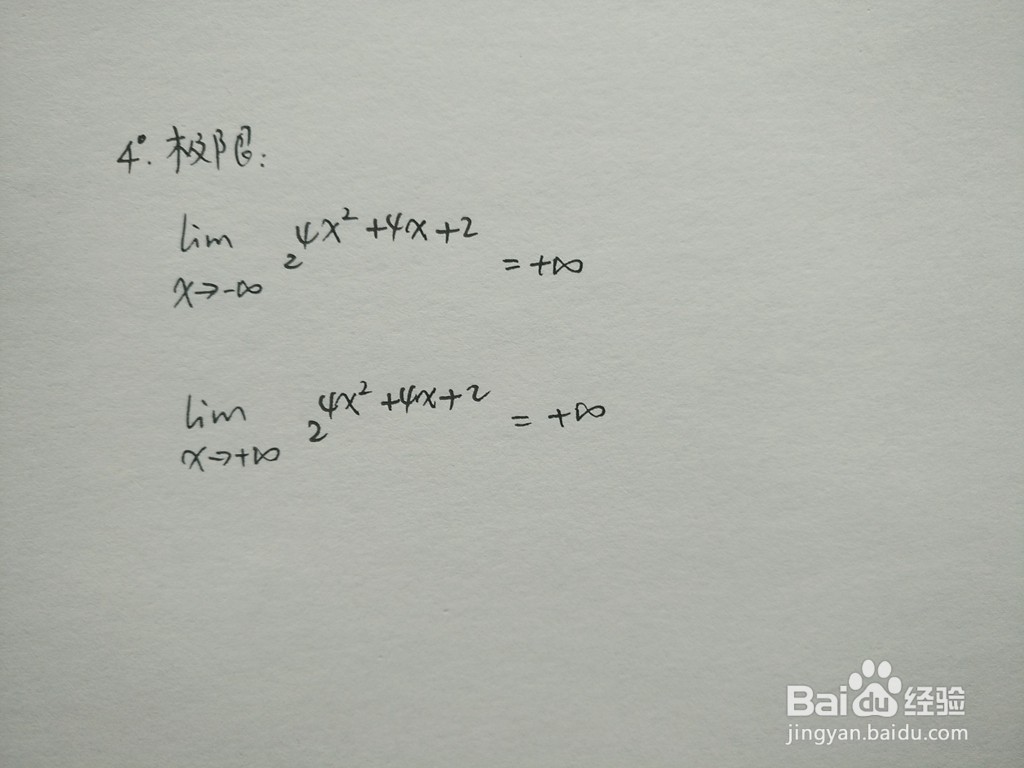 4°. 极限:
lim 2^{4x²+4x+2} = +∞
x→-∞
lim 2^{4x²+4x+2} = +∞
x→+∞
Bai du 经验
jingyan.baidu.com